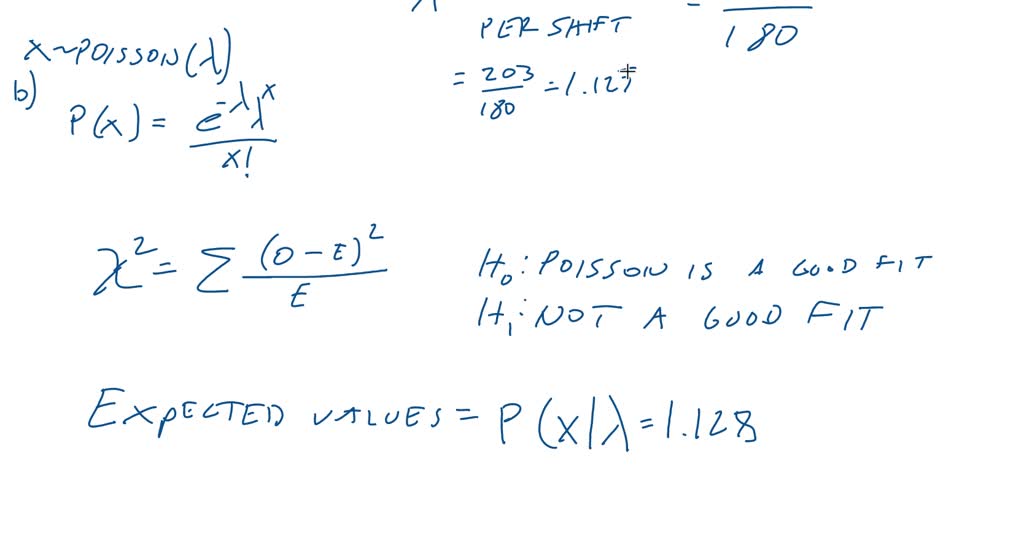 PER SHIFT
180
X~POISSON(λ)
= 203/180 = 1.127
b)
P(x) = e^-λ λ^x / x!
χ² = Σ (O - E)² / E
H₀: POISSON IS A GOOD FIT
H₁: NOT A GOOD FIT
EXPECTED VALUES = P(X|λ=1.128